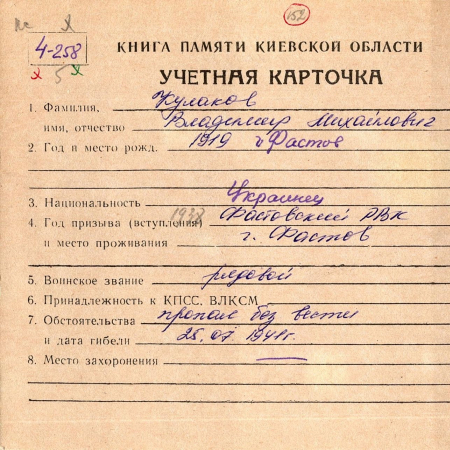 152
4-258
5
КНИГА ПАМЯТИ КИЕВСКОЙ ОБЛАСТИ
УЧЕТНАЯ КАРТОЧКА
1. Фамилия, Кулаков
имя, отчество Владимир Михайлович
2. Год и место рожд. 1919 г Фастов
3. Национальность Украинец
4. Год призыва (вступления) 1938 Фастовский РВК
и место проживания г. Фастов
5. Воинское звание рядовой
6. Принадлежность к КПСС, ВЛКСМ
7. Обстоятельства пропал без вести
и дата гибели 25.07.1941г.
8. Место захоронения —